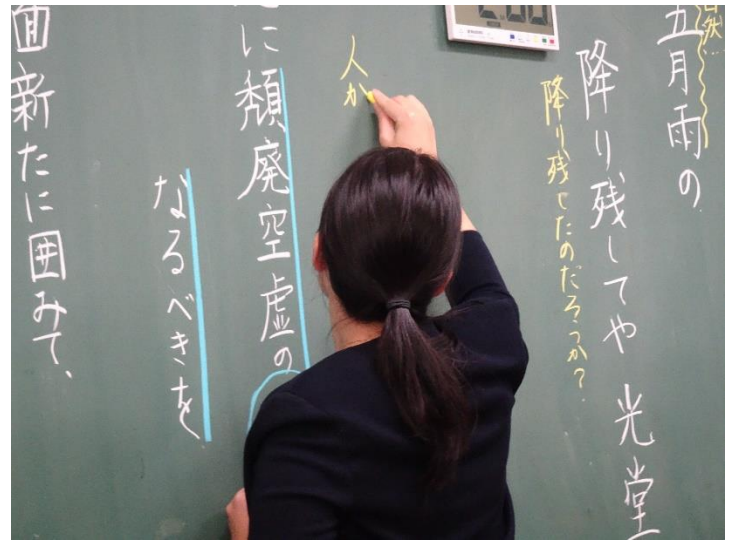 自然…
五月雨の
降り残してや光堂
降り残したのだろうか?
人が
に頽廃空虚の
なるべきを
面新たに囲みて、